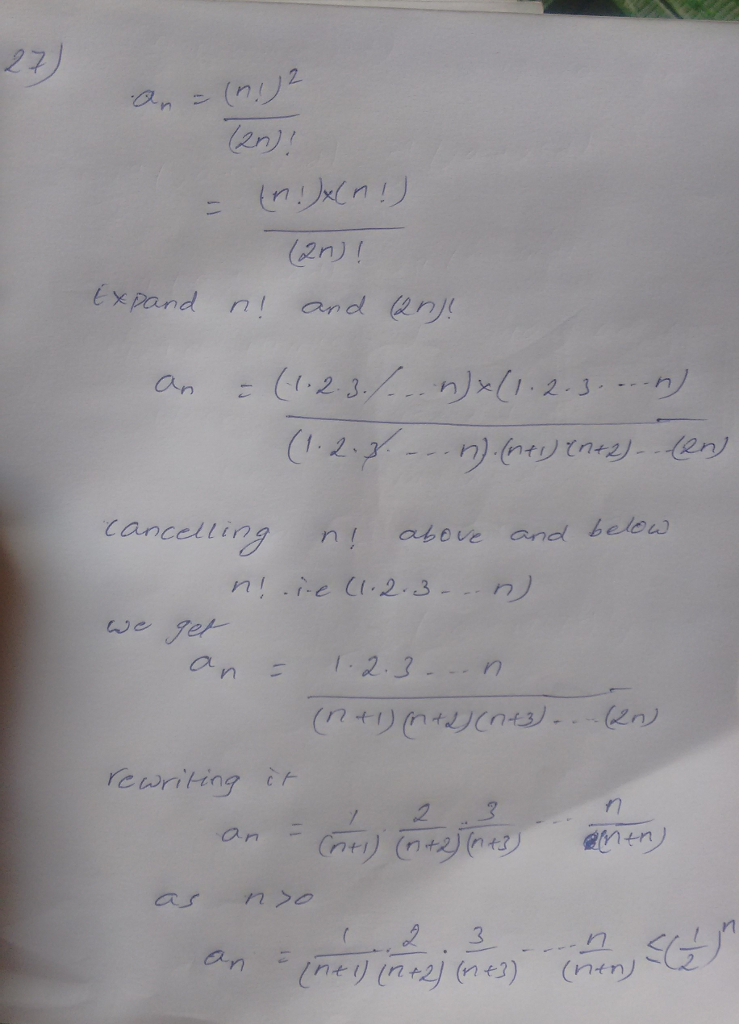 27)
aₙ = (n!)² / (2n)!
= (n!)×(n!) / (2n)!
Expand n! and (2n)!
aₙ = (1·2·3·/....n)×(1·2·3·....n) / (1·2·3·....n)·(n+1)·(n+2)...(2n)
cancelling n! above and below
n! .i.e (1·2·3...n)
we get
aₙ = 1·2·3....n / (n+1)(n+2)(n+3)....(2n)
rewriting it
aₙ = 1/(n+1) · 2/(n+2) · 3/(n+3) ... n/(n+n)
as n>0
aₙ = 1/(n+1) · 2/(n+2) · 3/(n+3) ..... n/(n+n) ≤ (1/2)ⁿ